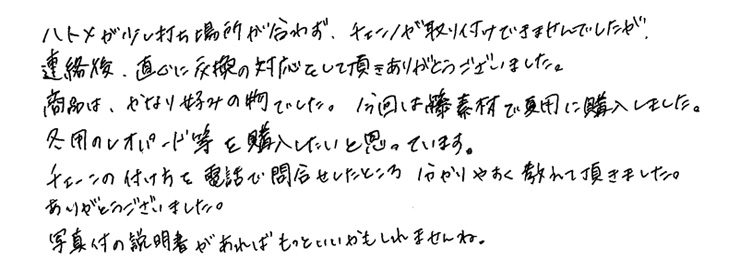 ハトメが少し打ち場所が合わず、チェーンが取り付けできませんでしたが、
連絡後、直ぐに交換の対応をして頂きありがとうございました。
商品は、かなり好みの物でした。今回は籐素材で夏用に購入しました。
冬用のレオパード等を購入したいと思っています。
チェーンの付け方を電話で問合せしたところ分かりやすく教えて頂きました。
ありがとうございました。
写真付の説明書があればもっといいかもしれませんね。